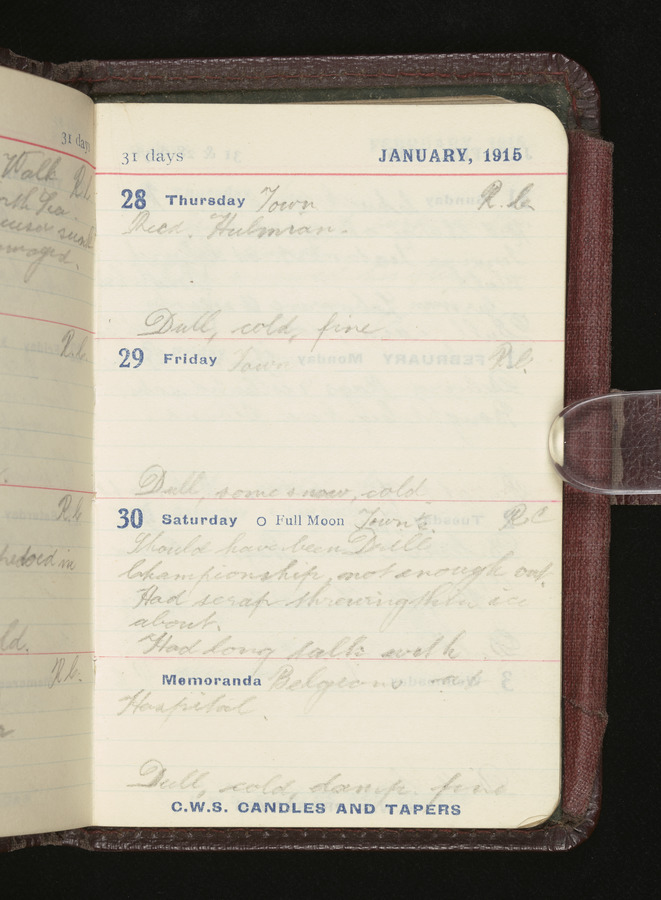 31 days
Walk R.C.
North Sea
sunk
R.C.
R.C.
in
R.C.
31 days JANUARY, 1915
28 Thursday Town R.C.
Recd.
Dull, cold, fine
29 Friday Town R.C.
Dull, some snow, cold
30 Saturday Full Moon Town R.C
Should have been Drill
Championship, not enough out.
Had scrap throwing thin ice
about.
Had long talk with
Memoranda Belgians at
Hospital.
Dull, cold, damp. fine
C.W.S. CANDLES AND TAPERS